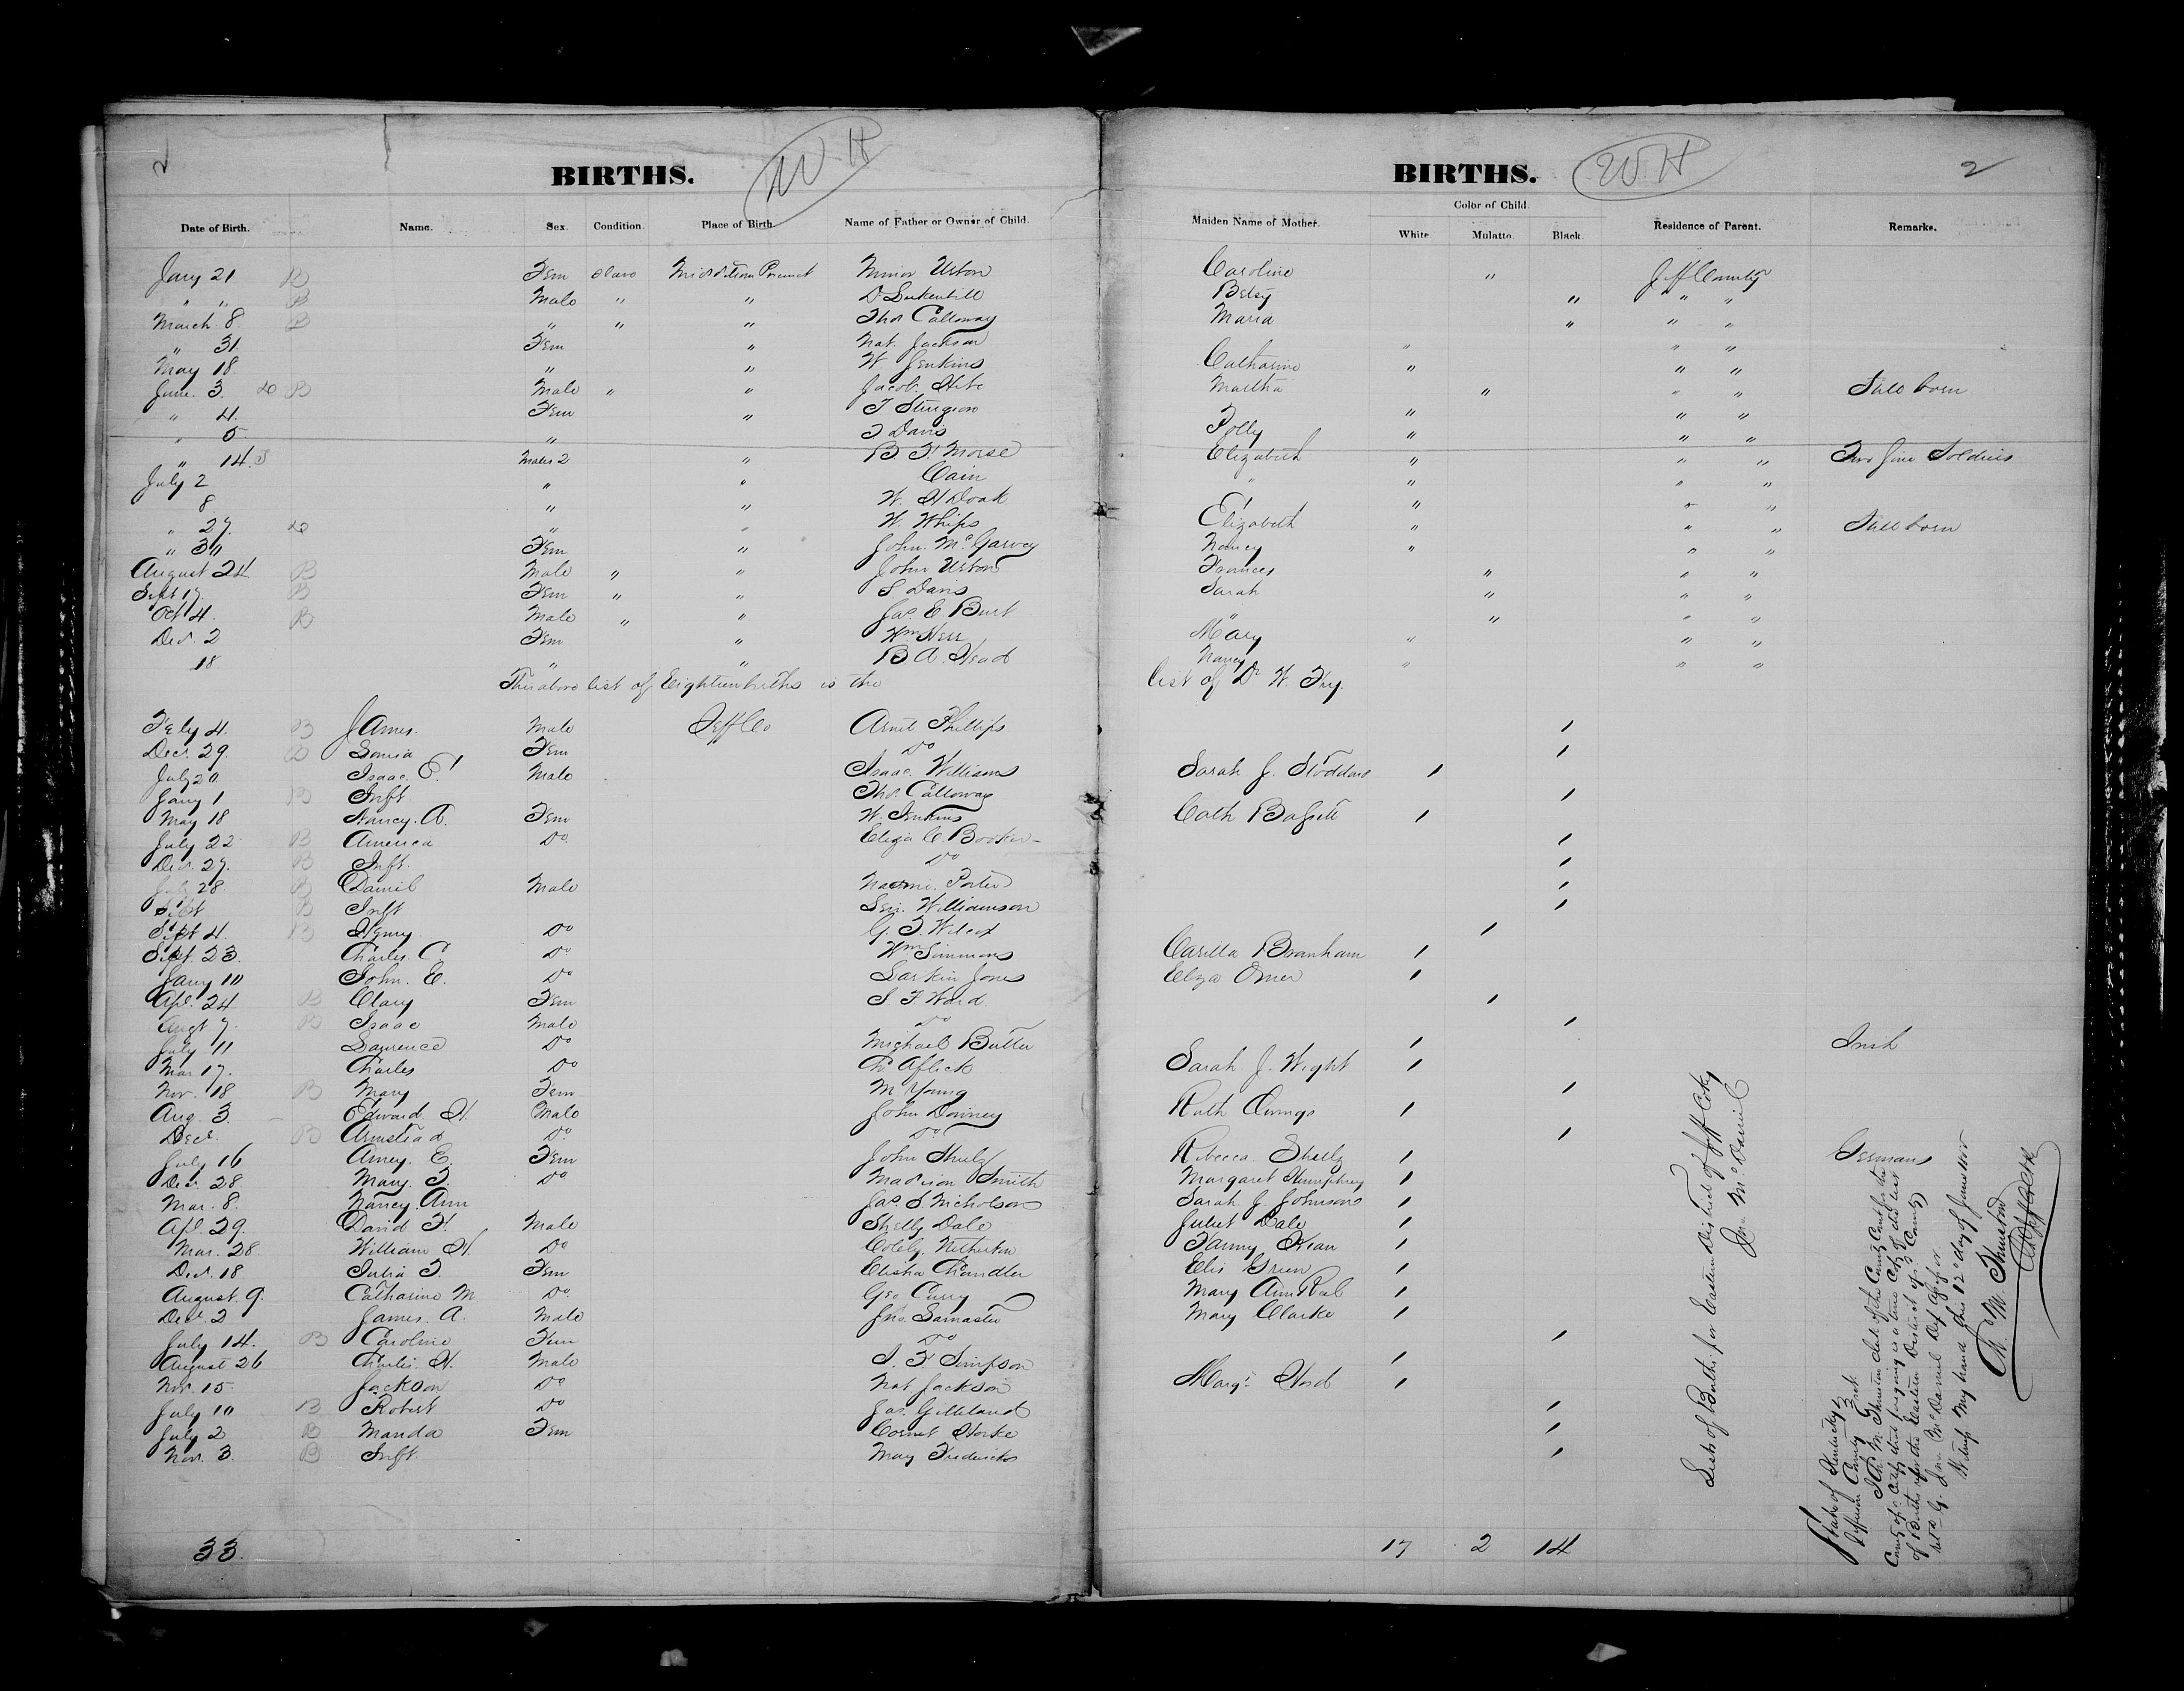 2
BIRTHS. W H
BIRTHS. W H 2
Date of Birth. Name. Sex. Condition. Place of Birth. Name of Father or Owner of Child. Maiden Name of Mother. Color of Child. White. Mulatto. Black. Residence of Parent. Remarks.
Jany 21 B Fem Slave Middletown Precinct Minor Urton Caroline " Jeff County
" " B Male " " Betsy " " "
March 8 B " " " Thos Calloway Maria " " "
" 31 Fem " Nat. Jackson " " "
May 18 " " W Jenkins Catharine " " "
June. 3 B Male " " Jacob Hite Martha " " " Still born
" 4 Fem " T Sturgeon " " "
" 5 " T Davis Polly " " "
" 14. Males 2 " B F Morse Elizabeth " " " Two fine Soldiers
July 2 " " Cain " " " "
8 " " W. H Doak " " "
" 27. " " W. Whips Elizabeth " " " Still born
" 30 Fem " John. Mc Garvey Nancy " " "
August 24 B Male " " John Urton Frances " " "
Sept 17. B Fem " " S. Davis Sarah " " "
Oct 4. B Male " " Jas. E Burt " " " "
Decr. 2 Fem " Wm Herr Mary " " "
18 " " B. A. Head Nancy " " "
The above list of Eighteen births is the list of Dr W. Fry.
Feby 4. B James. Male Jeff Co Phillips /
Decr. 29. B Louisa Fem Do /
July 20 Isaac. E. Male Isaac Williams Sarah J. Stoddard /
Jany 1 B Inft Thos. Calloway /
May 18 Nancy. A. Fem W. Jenkins Cath Bassett /
July 22 B America Do Eliza C. Booker /
Decr. 27. B Inft. Do /
July 28. B Daniel Male Naomi. Porter /
Sept B Inft Williamson /
Sept 4. B Henry Do G. T. Wilcox /
Sept. 23. Charles. C. Do Wm Simmons Branham /
Jany 10 John. E. Do Larkin Jones Eliza Omer /
Apl. 24 B Clary Fem S F Ward /
Augt 7. B Isaac Male Do /
July 11 Lawrence Do Michael Butler / Irish
Mar 17. Charles Do Aflick Sarah J. Wright /
Nov. 18 B Mary Fem M Young /
Aug. 3 Edward. H. Male John Downey Ruth Owings /
Decr. B Armstead Do. Do /
July 16 Amey. E. Fem John Shulz Rebecca Shultz / Germans
Decr. 28 Mary. F. Do Madison Smith Margaret Humphrey /
Mar. 8. Nancy Ann Jas S Nicholson Sarah J Johnson /
Apl. 29. David F. Male Shelly Dale Juliet Dale /
Mar. 28 William H. Do Netherton Fanny /
Decr. 18 Julia F. Fem Elisha Chandler Green /
August. 9. Catharine M. Do. Geo Curry Mary Ann /
Decr 2 James. A. Male Jno. Lamaster Mary Clarke /
July 14. B Caroline Fem Do /
August 26 Charles. H. Male S. F Simpson /
Nov. 15 Jackson Do Nat Jackson Margt. /
July 10 B Robert Do Jas. Gilliland /
July 2 B Manda Fem /
Nov. 3 B Inft. May Fredericks /
33. 17 2 14
Lists of Births for Eastern District of Jeff Co Ky
Jno Mc Daniel
State of Kentucky
Jefferson County Sct.
I Ch. M. Thruston clerk of the County Court for the
County of certify that foregoing is a true Copy of the list
of Births for the Eastern District of sd County
Jno McDaniel
Witness My hand this 12th day of June
Ch. M. Thruston